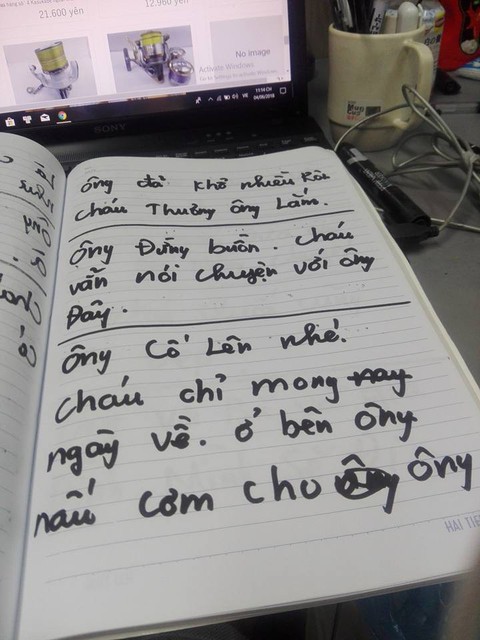 21.600 yên
12.960 yên
No image
Activate Windows
Go to Settings to activate Windows.
11:14 CH
04/06/2018
SONY
ông đã khổ nhiều Rồi
cháu Thương ông Lắm.
ông Đừng buồn. cháu
vẫn nói chuyện với ông
Đây.
ông Cố Lên nhé.
cháu chỉ mong nay
ngày về. ở bên ông
nấu cơm cho ông ông
HẢI TIẾ